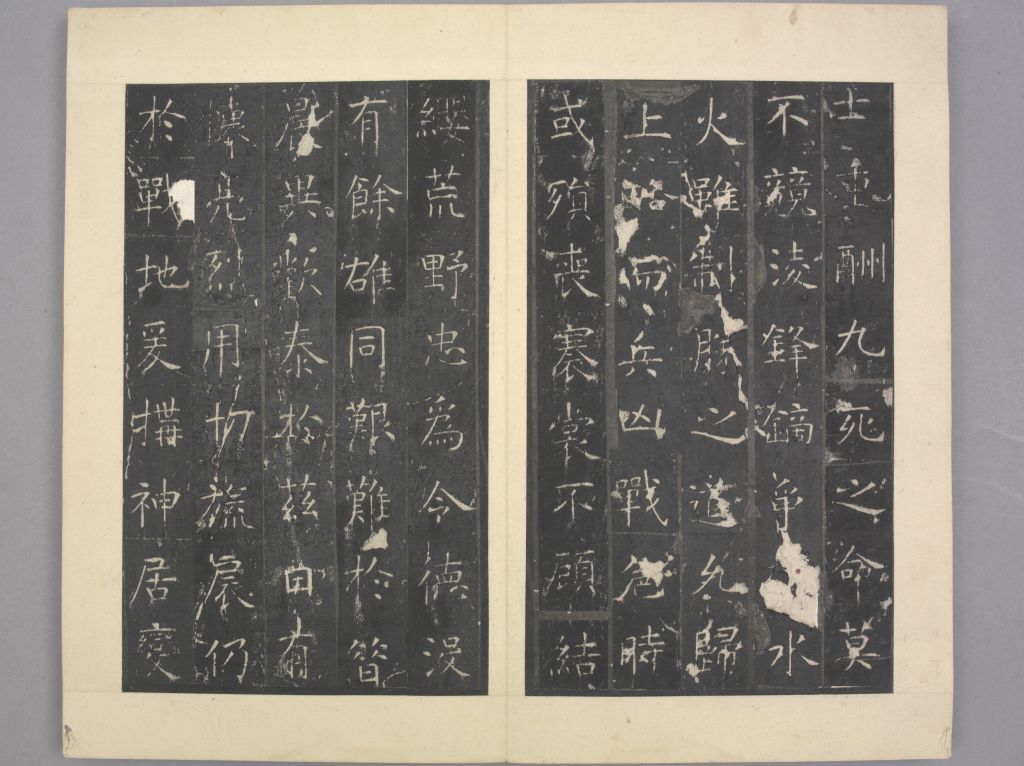 士重酬九死之命莫
不競凌鋒鏑爭水
火雖制勝之道允歸
上略而兵凶戰危時
或殞喪褰裳不顧結
纓荒野忠為令德沒
有餘雄同艱難於昔
晨異歡泰於茲日有
懷亮烈用切旒扆仍
於戰地爰構神居變